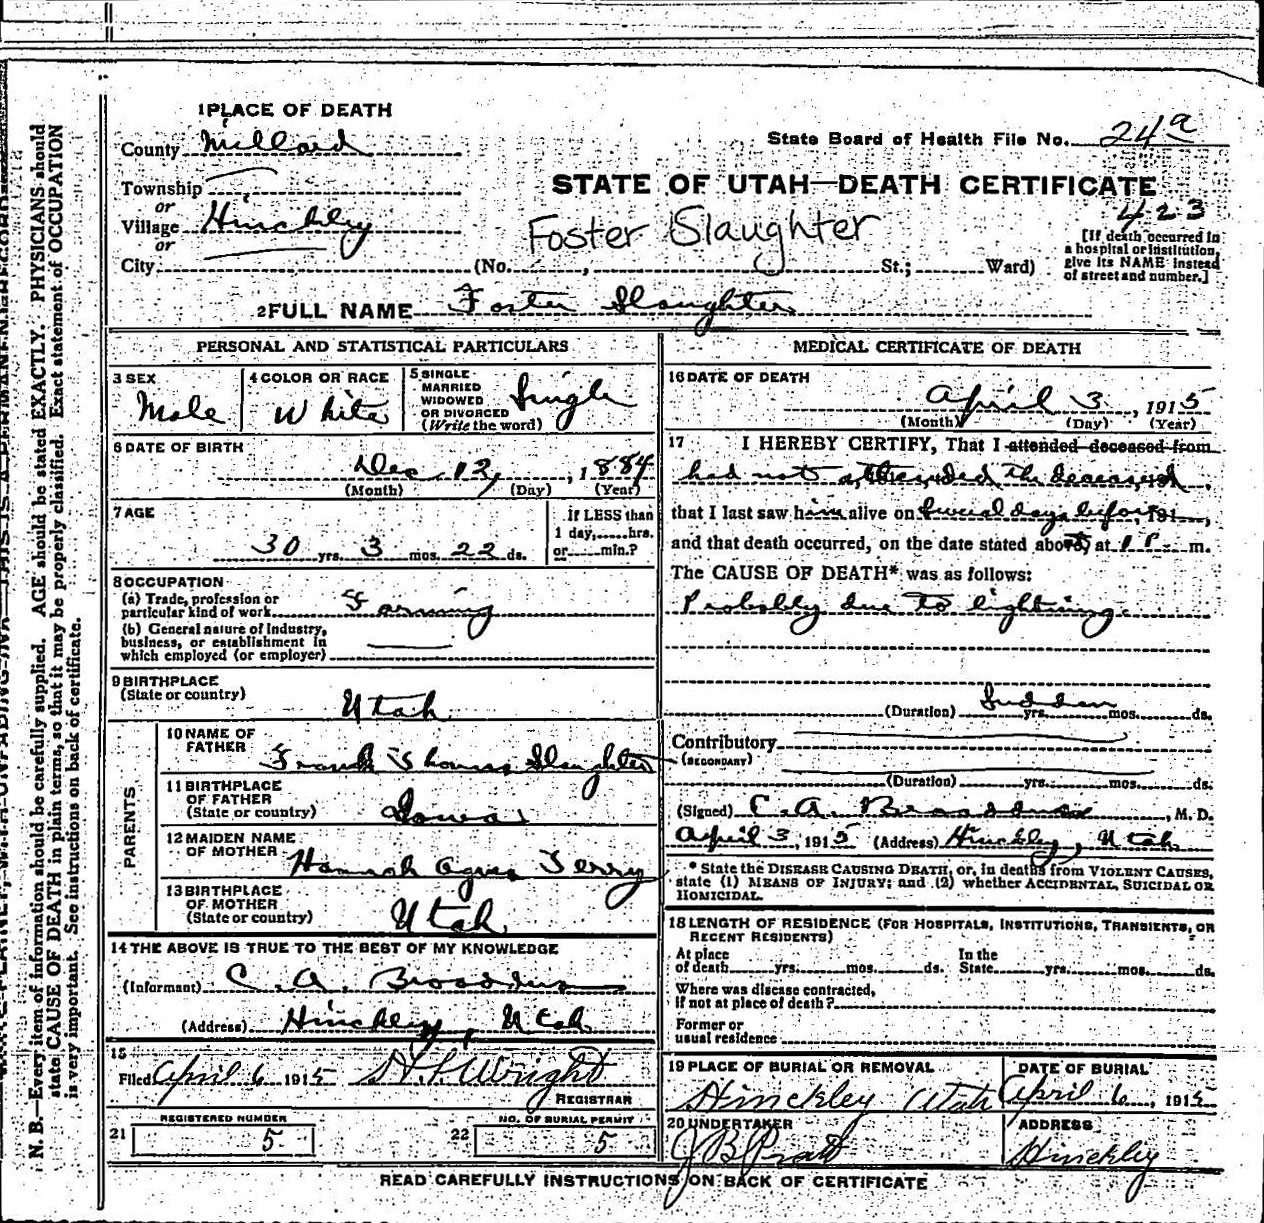 1 PLACE OF DEATH
County Millard
State Board of Health File No. 24a
Township
or
Village Hinckley
or
City
STATE OF UTAH—DEATH CERTIFICATE
423
Foster Slaughter
(No. , St.; Ward)
[If death occurred in
a hospital or institution,
give its NAME instead
of street and number.]
2 FULL NAME Foster Slaughter
PERSONAL AND STATISTICAL PARTICULARS
3 SEX
Male
4 COLOR OR RACE
White
5 SINGLE
MARRIED
WIDOWED
OR DIVORCED
(Write the word)
Single
6 DATE OF BIRTH
Dec. 12, , 1884
(Month) (Day) (Year)
7 AGE
30 yrs. 3 mos. 22 ds.
If LESS than
1 day, hrs.
or min.?
8 OCCUPATION
(a) Trade, profession or
particular kind of work Farming
(b) General nature of industry,
business, or establishment in
which employed (or employer)
9 BIRTHPLACE
(State or country)
Utah
PARENTS
10 NAME OF
FATHER
Frank Thomas Slaughter
11 BIRTHPLACE
OF FATHER
(State or country)
Iowa
12 MAIDEN NAME
OF MOTHER
Hannah Agnes Terry
13 BIRTHPLACE
OF MOTHER
(State or country)
Utah
14 THE ABOVE IS TRUE TO THE BEST OF MY KNOWLEDGE
(Informant) C. A. Broaddus
(Address) Hinckley, Utah
15
Filed April 6 1915
Wright
REGISTRAR
REGISTERED NUMBER
21 5
NO. OF BURIAL PERMIT
22 5
MEDICAL CERTIFICATE OF DEATH
16 DATE OF DEATH
April 3 , 1915
(Month) (Day) (Year)
17 I HEREBY CERTIFY, That I attended deceased from
had not attended the deceased
that I last saw him alive on several days before, 191 ,
and that death occurred, on the date stated above, at 1 P. m.
The CAUSE OF DEATH* was as follows:
Probably due to lightning.
(Duration) Sudden yrs. mos. ds.
Contributory
(SECONDARY)
(Duration) yrs. mos. ds.
(Signed) C. A. Broaddus , M. D.
April 3, 1915 (Address) Hinckley, Utah
* State the DISEASE CAUSING DEATH, or, in deaths from VIOLENT CAUSES,
state (1) MEANS OF INJURY; and (2) whether ACCIDENTAL, SUICIDAL OR
HOMICIDAL.
18 LENGTH OF RESIDENCE (FOR HOSPITALS, INSTITUTIONS, TRANSIENTS, OR
RECENT RESIDENTS)
At place
of death yrs. mos. ds.
In the
State yrs. mos. ds.
Where was disease contracted,
if not at place of death?
Former or
usual residence
19 PLACE OF BURIAL OR REMOVAL
Hinckley Utah
DATE OF BURIAL
April 6 , 1915
20 UNDERTAKER
J B Pratt
ADDRESS
Hinckley
READ CAREFULLY INSTRUCTIONS ON BACK OF CERTIFICATE
N. B.—Every item of information should be carefully supplied. AGE should be stated EXACTLY. PHYSICIANS should
state CAUSE OF DEATH in plain terms, so that it may be properly classified. Exact statement of OCCUPATION
is very important. See instructions on back of certificate.